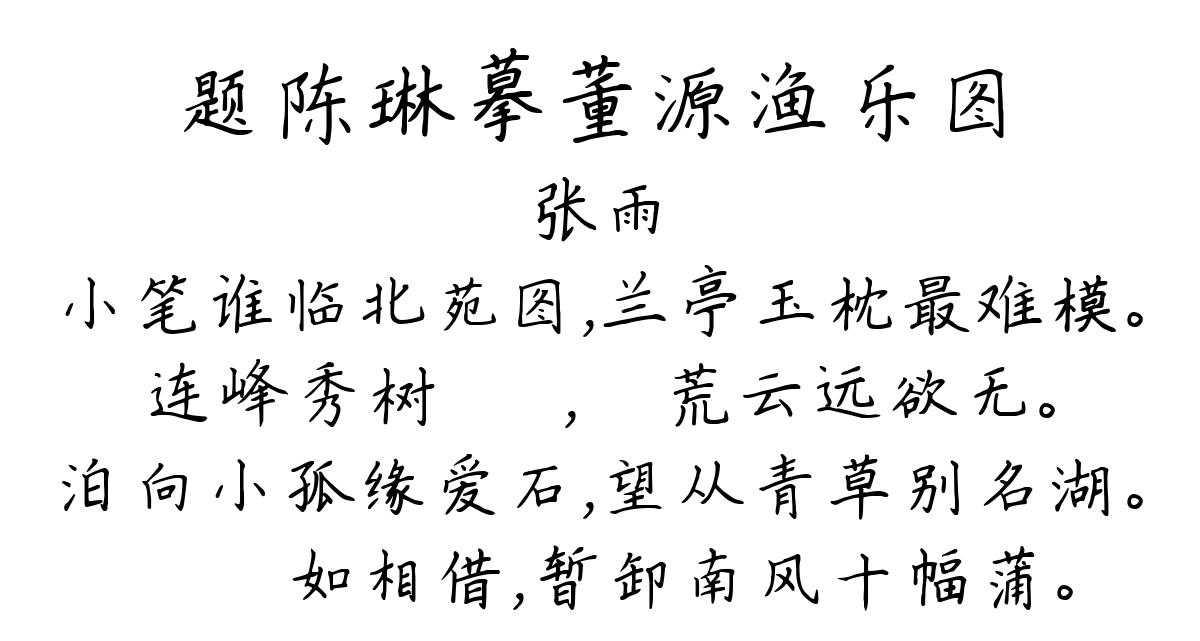 题陈琳摹董源渔乐图
张雨
小笔谁临北苑图,兰亭玉枕最难模。
连峰秀树　　，　荒云远欲无。
泊向小孤缘爱石,望从青草别名湖。
如相借,暂卸南风十幅蒲。